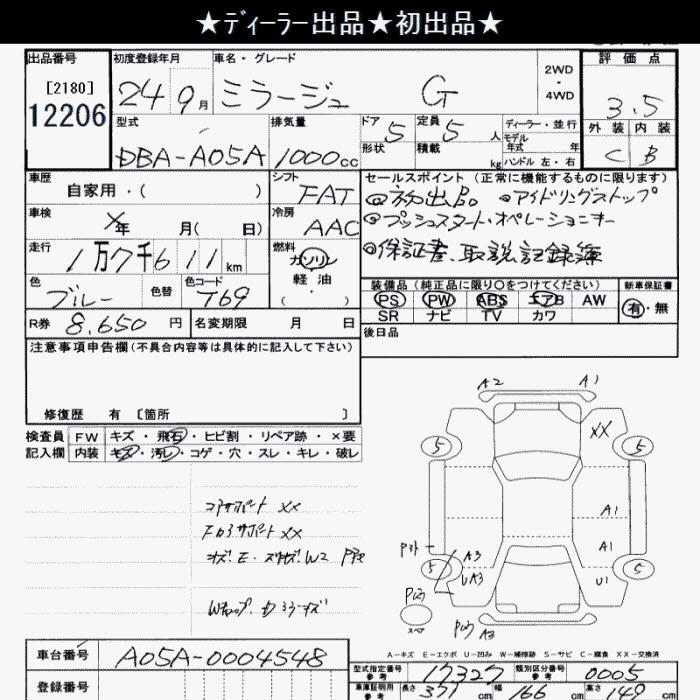 ★ディーラー出品★初出品★
出品番号 初度登録年月 車名・グレード 評価点
[2180] 24年 9月 ミラージュ G 2WD・4WD 3.5
12206
型式 排気量 ドア 5 定員 5人 ディーラー・並行 外装 内装
DBA-A05A 1000cc 形状 積載 kg モデル年式 年 C B
ハンドル 左・右
車歴 シフト セールスポイント(正常に機能するものに限ります)
自家用・( ) FAT ◎初出品。 ◎アイドリングストップ
車検 冷房 ◎プッシュスタート・オペレーションキー
年 月( 日) AAC
◎保証書、取説記録簿
走行 燃料
1万7千611km ガソリン
軽油
・( )
色 色替 色コード 装備品(純正品に限り○をつけてください) 新車保証書
ブルー T69 PS PW ABS エアB AW 有・無
SR ナビ TV カワ
R券 8,650円 名変期限 月 日 後日品
注意事項申告欄(不具合内容等は具体的に記入して下さい)
修復歴 有 〔箇所 〕
検査員 FW キズ・飛石・ヒビ割・リペア跡・×要
記入欄 内装 キズ・汚レ・コゲ・穴・スレ・キレ・破レ
A2 A1
XX
5 5
コアサポート XX
A1
A1
A3
UA3 U1
5 5
スペア
A3
A-キズ E-エクボ U-凹み W-補修跡 S-サビ C-腐食 XX-交換済
車台番号 A05A-0004548
登録番号
型式指定番号 参考 17327 類別区分番号 参考 0005
車庫証明用 参考 長さ 371cm 幅 166cm 高さ 149cm